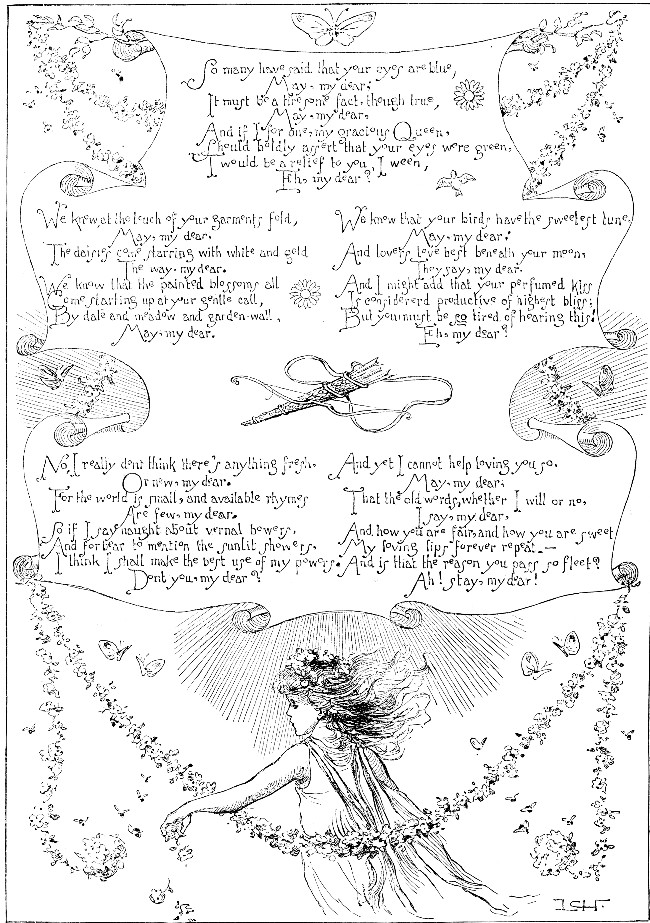 So many have said that your eyes are blue,
May, my dear.
It must be a tiresome fact, though true,
May, my dear,
And if I for one, my gracious Queen,
Should boldly assert that your eyes were green,
I would be a relief to you, I ween,
Eh, my dear?
We knew at the touch of your garments fold,
May, my dear.
The daisies come starring with white and gold
The way, my dear.
We know that the painted blossoms all
Come starting up at your gentle call,
By dale and meadow and garden-wall,
May, my dear.
We know that your birds have the sweetest tune
May, my dear.
And lovers love best beneath your moon,
They say, my dear.
And I might add that your perfumed kiss
Is considered productive of highest bliss;
But you must be so tired of hearing this!
Eh, my dear?
No, I really dont think there's anything fresh,
Or new, my dear.
For the world is small, and available rhymes
Are few, my dear.
So if I say naught about vernal bowers,
And forbear to mention the sunlit showers,
I think I shall make the best use of my powers.
Dont you, my dear?
And yet I cannot help loving you so,
May, my dear,
That the old words, whether I will or no,
I say, my dear,
And how you are fair, and how you are sweet
My loving lips forever repeat.—
And is that the reason you pass so fleet?
Ah! stay, my dear!
I.S.H.